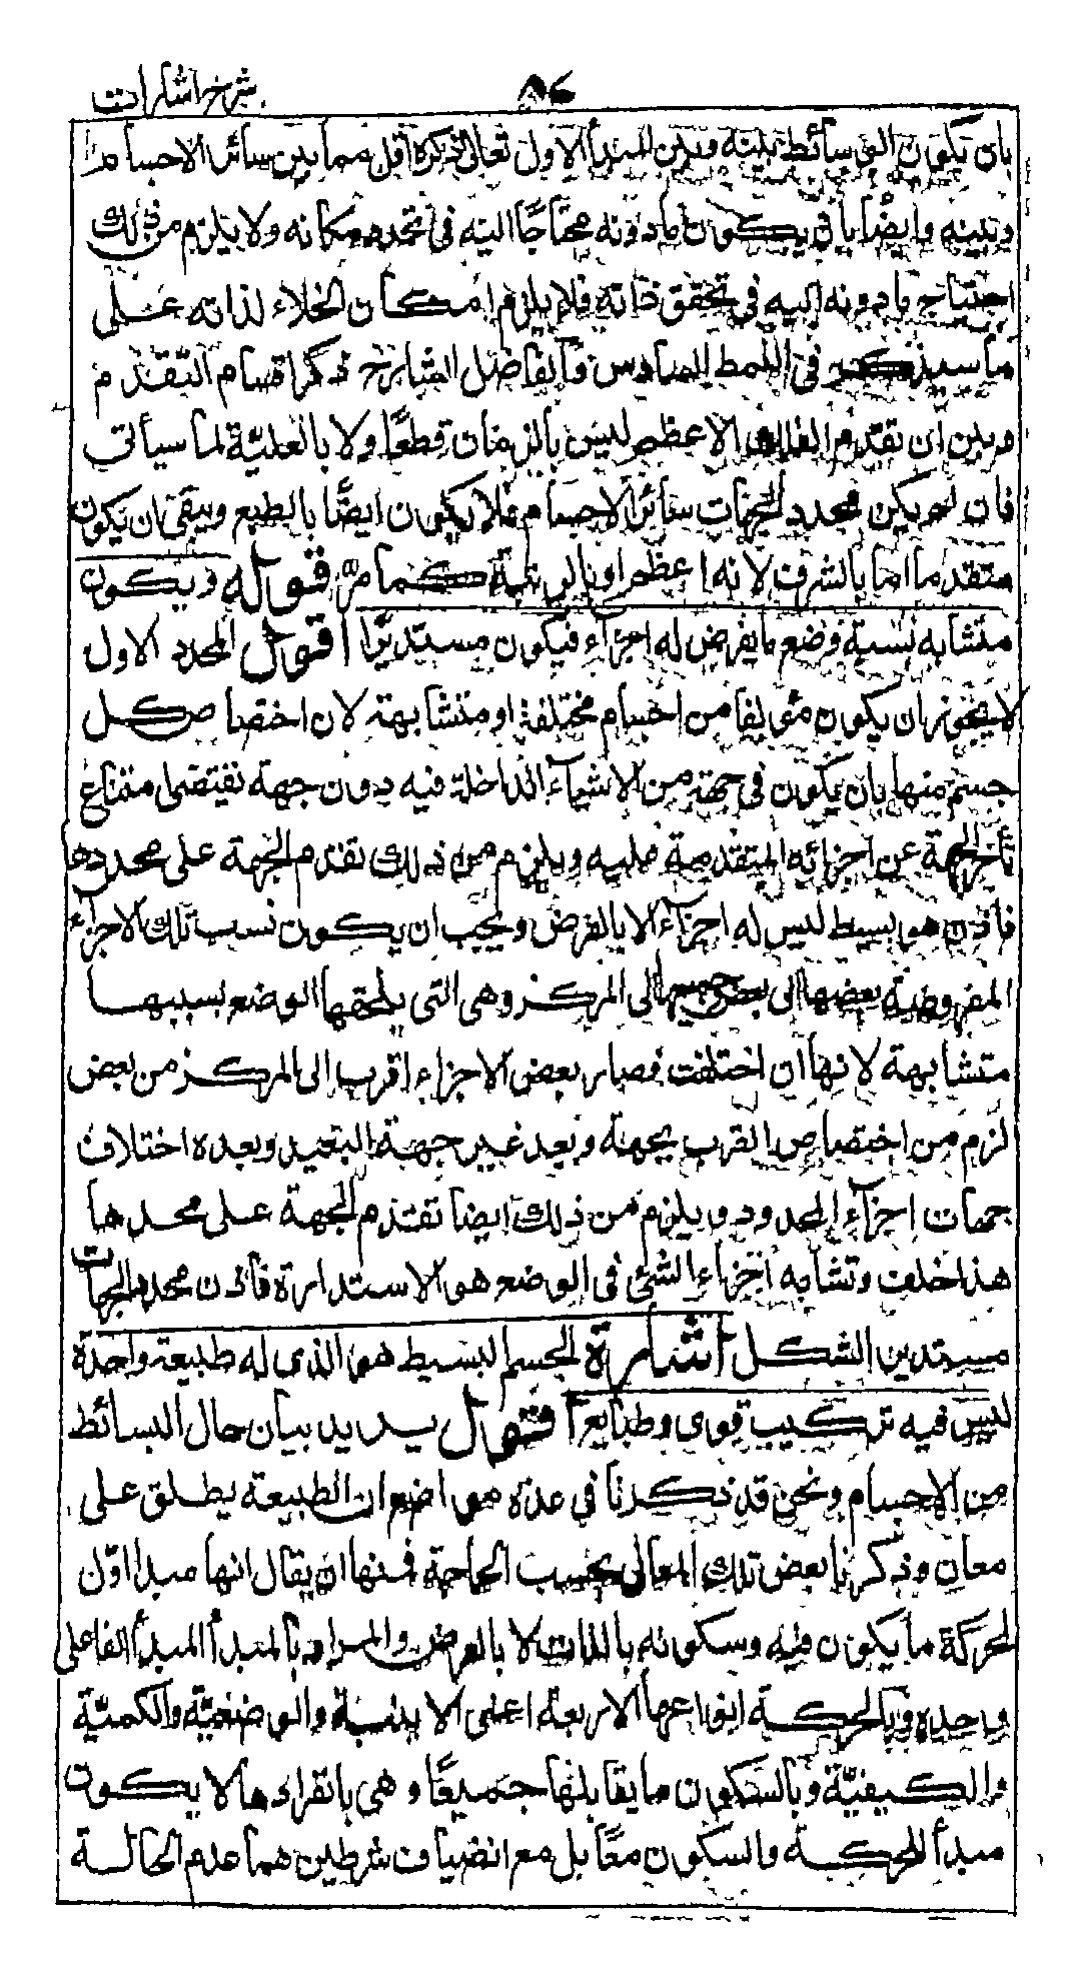 شرح اشارات
٨٤
بان يكون الوسائط بينه وبين المبدأ الاول تعالى ذكره اقل مما بين سائر الاجسام
وبينه وايضا بان يكون ما دونه محتاجًا اليه فى تحدد مكانه ولا يلزم من ذلك
احتياج ما دونه اليه فى تحقق ذاته فلا يلزم امكان الخلاء لذاته على
ما سيذكر فى النمط السادس والفاضل الشارح ذكر اقسام التقدم
وبين ان تقدم الفلك الاعظم ليس بالزمان قطعًا ولا بالعليّة لما سياتى
فان لم يكن محدد لجهات سائر الاجسام فلا يكون ايضًا بالطبع ويبقى ان يكون
متقدما اما بالشرف لانه اعظم او بالرتبة كما مرّ قوله ويكون
متشابه نسبة وضع ما يفرض له اجزاء فيكون مستديرًا اقول المحدد الاول
لا يجوز ان يكون مؤلفا من اجسام مختلفة او متشابهة لان اختصاص كل
جسم منها بان يكون فى جهة من الاشياء الداخلة فيه دون جهة يقتضى امتناع
تأخر الجهة عن اجزائه المتقدمة عليه ويلزم من ذلك تقدم الجهة على محددها
فاذن هو بسيط ليس له اجزاء الا بالفرض ويجب ان يكون نسب تلك الاجزاء
المفروضة بعضها الى بعض جميعها الى المركز وهى التى يلحقها الوضع بسببها
متشابهة لانها ان اختلفت فصار بعض الاجزاء اقرب الى المركز من بعض
لزم من اختصاص القرب بجهة وبعد غير جهة البعيد وبعده اختلاف
جهات اجزاء المحدود ويلزم من ذلك ايضا تقدم الجهة على محددها
هذا خلف وتشابه اجزاء الشئ فى الوضع هو الاستدارة فاذن محدد الجهات
مستدير الشكل اشارة الجسم البسيط هو الذى له طبيعة واحدة
ليس فيه تركيب قوى وطبايع اقول يريد بيان حال البسائط
من الاجسام ونحن قد ذكرنا في عدة مواضع ان الطبيعة يطلق على
معان وذكرنا بعض تلك المعانى بحسب الحاجة فمنها ان يقال انها مبدا اول
لحركة ما يكون فيه وسكونه بالذات لا بالعرض والمراد بالمبدأ المبدأ الفاعلى
وحده وبالحركة انواعها الاربعة اعنى الاينية والوضعيّة والكميّة
والكيفيّة وبالسكون ما يقابلها جميعًا وهى بانفرادها لا يكون
مبدأ للحركة والسكون معًا بل مع انضياف شرطين هما عدم الحالة